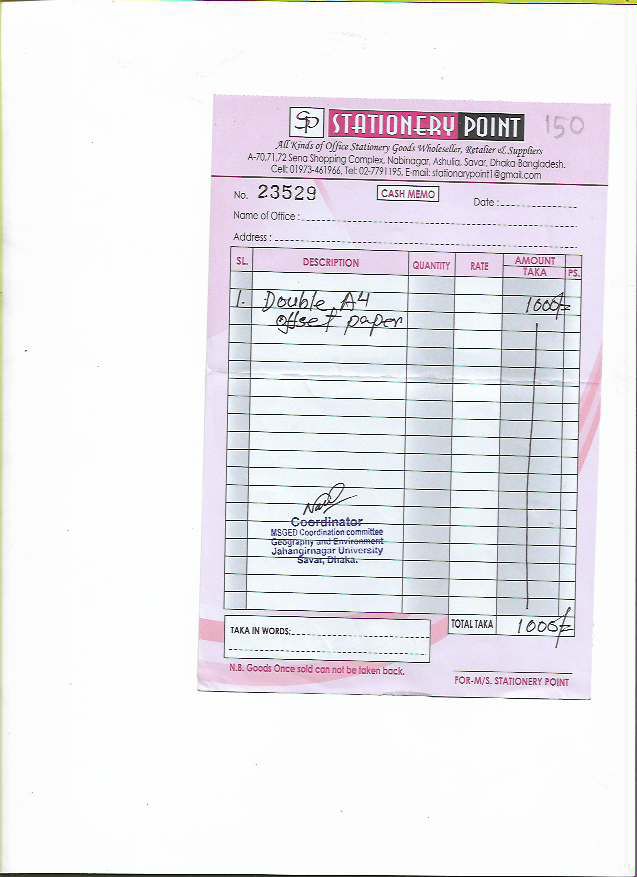 SP STATIONERY POINT 150
All Kinds of Office Stationery Goods Wholeseller, Retalier & Suppliers
A-70,71,72 Sena Shopping Complex, Nabinagar, Ashulia, Savar, Dhaka-Bangladesh.
Cell: 01973-461966, Tel: 02-7791195, E-mail: stationarypoint1@gmail.com
No. 23529 CASH MEMO Date :
Name of Office :
Address :
SL. DESCRIPTION QUANTITY RATE AMOUNT
TAKA PS.
1. Double A4 1000/=
offset paper
Coordinator
MSGED Coordination committee
Geography and Environment
Jahangirnagar University
Savar, Dhaka.
TAKA IN WORDS: TOTAL TAKA 1000/=
N.B. Goods Once sold can not be taken back.
FOR-M/S. STATIONERY POINT